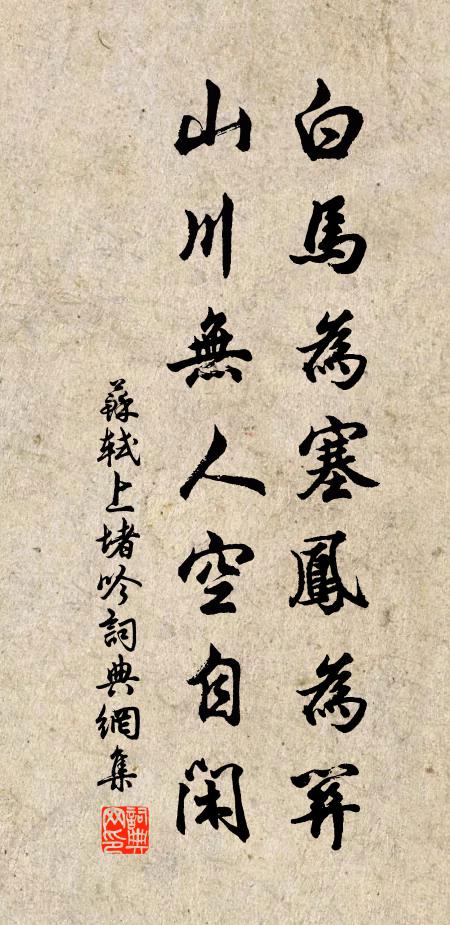 白馬為塞鳳為關
山川無人空自閑
蘇軾上堵吟詞典網集
詞典
网印